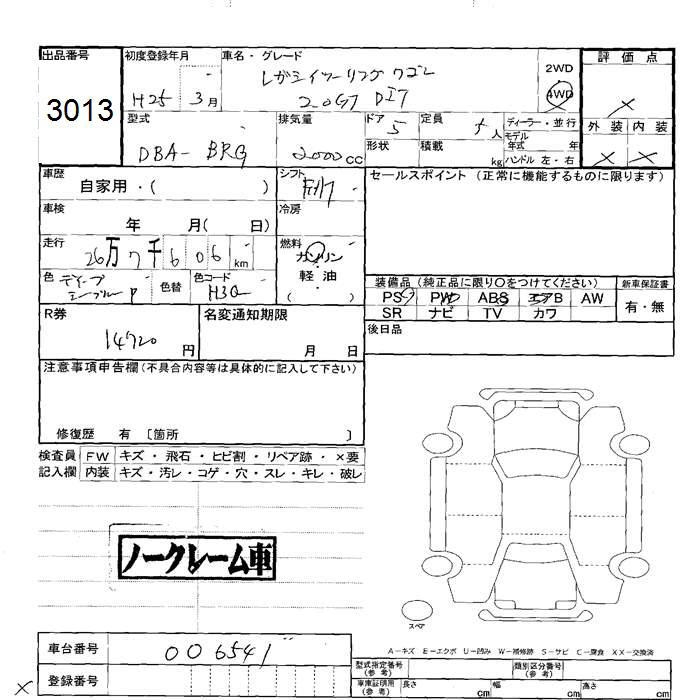 出品番号
3013
初度登録年月
H25 3月
車名・グレード
レガシイツーリングワゴン
2.0GT DIT
2WD
4WD
評価点
×
型式
DBA- BRG
排気量
2000cc
ドア
5
定員
5人
ディーラー・並行
モデル
年式 年
形状
積載
kg
ハンドル 左・右
外装 内装
× ×
車歴
自家用・( )
シフト
FA7
セールスポイント(正常に機能するものに限ります)
車検
年 月( 日)
冷房
走行
26万7千606km
燃料
ガソリン
軽・油
( )
色
ディープ
シーブルーP
色替
色コード
H3Q
装備品(純正品に限り○をつけてください)
新車保証書
PS PW ABS エアB AW
SR ナビ TV カワ
有・無
R券
14720円
名変通知期限
月 日
後日品
注意事項申告欄(不具合内容等は具体的に記入して下さい)
修復歴 有 〔箇所 〕
検査員 FW キズ・飛石・ヒビ割・リペア跡・×要
記入欄 内装 キズ・汚レ・コゲ・穴・スレ・キレ・破レ
ノークレーム車
スペア
A-キズ E-エクボ U-凹み W-補修跡 S-サビ C-腐食 XX-交換済
車台番号
006541
登録番号
×
型式指定番号
(参考)
類別区分番号
(参考)
車庫証明用
(参考)
長さ cm
幅 cm
高さ cm